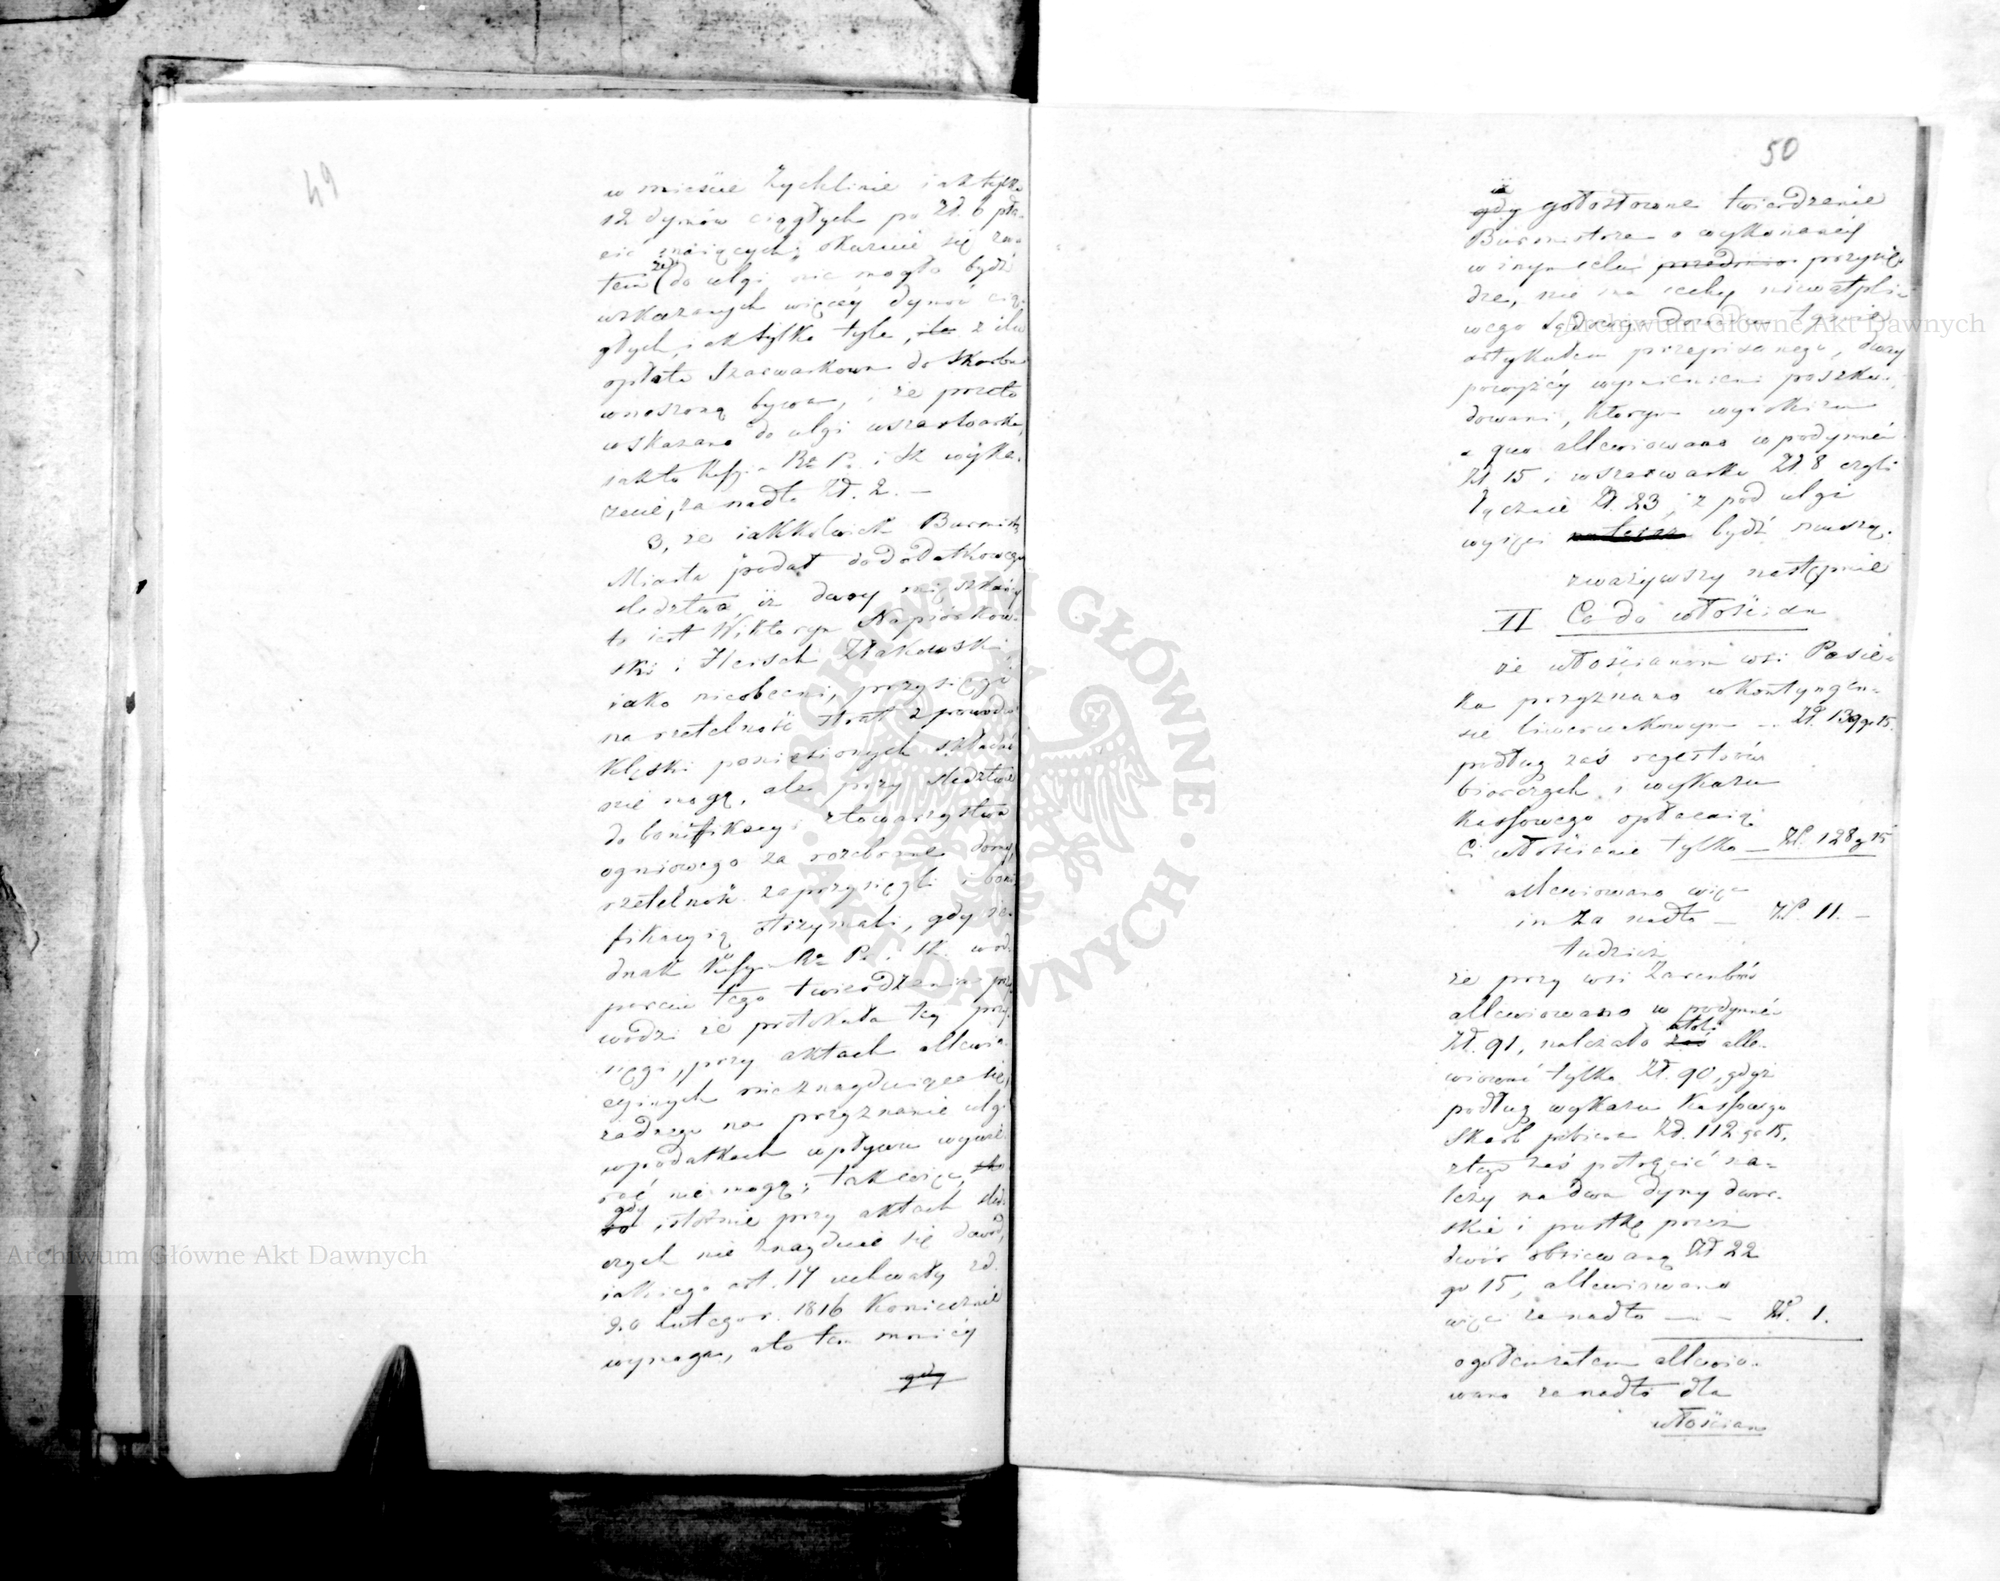 49
w mieście Żychlinie i jak tylko
12 dymów ciągłych po Zł. 6 pła-
cić mających, okazuie się za-
tem że do ulgi nie mogło bydź
wskazanych więcey dymów cią-
głych, iak tylko tyle, ile z ilu
opłata Szarwarkowa do Skarbu
wnoszoną bywa, i że przeto
wskazano do ulgi w szarwarku,
iak to P. i Sk wyka-
zuie, za nadto Zł. 2. —
3, że iakkolwiek Burmistrz
Miasta podał do dodatkowego
śledztwa, iż dway mieszkańcy
to iest Wiktoryn Napiórkow-
ski i Hersch Złakowski,
iako nieobecni, przysięgi
na rzetelność strat z powodu
klęski poniesionych składać
nie mogą, ale przy śledztwie
do bonifikacyi z towarzystwa
ogniowego za rozebrane domy
rzetelność zaprzysięgli i boni-
fikacyią otrzymali, gdy ie-
dnak P. i Sk. w od-
parciu tego twierdzenia przy-
wodzi że protokuła tey przy-
sięgi, przy aktach allewia-
cyinych nieznayduiące się,
żadnego na przyznanie ulgi
w podatkach wpływu wywie-
rać nie mogą; tak więc,
gdy istotnie przy aktach śled-
czych nie znayduie się dowód,
iakiego art. 14 uchwały z d.
20 Lutego r. 1816 koniecznie
wymaga, a to tem mniéy
gdy
50
iż
gdy gołosłowne twierdzenie
Burmistrza o wykonanéy
w innym celu przysię-
dze, nie ma cechy niewątpli-
wego sądowego dowodu tymże
artykułem przepisanego, dway
powyżéy wymienieni poszko-
dowani, którym wyrokiem
a quo allewiowano w podymném
Zł 15 i w szarwarku Zł. 8 czyli
łącznie Zł. 23, z pod ulgi
wyięci bydź muszą.
zważywszy następnie
II Co do włościan
że włościanom wsi Pasie-
ka przyznano w kontyngen-
sie liwerunkowym — Zł. 139 gr 15.
podług zaś regestrów
biorczych i wykazu
kassowego opłacaią
Ci włościanie tylko — Zł. 128 gr 15
allewiowano więc
im za nadto — Zł. 11. —
tudzież
że przy wsi Zarembów
allewiowano w podymném
Zł. 91, należało zaś alle-
wiować tylko Zł. 90, gdyż
podług wykazu Kassowego
Skarb pobiera Zł. 112 gr 15,
z tego zaś potrącić na-
leży na dwa dymy dwor-
skie i pustkę przez
dwór obsiewaną Zł 22
gr 15, allewiowano
więc za nadto — — Zł. 1.
ogółem zatem allewio-
wano za nadto dla
włościan
Archiwum Główne Akt Dawnych
Archiwum Główne Akt Dawnych
ARCHIWUM GŁÓWNE · AKT DAWNYCH ·